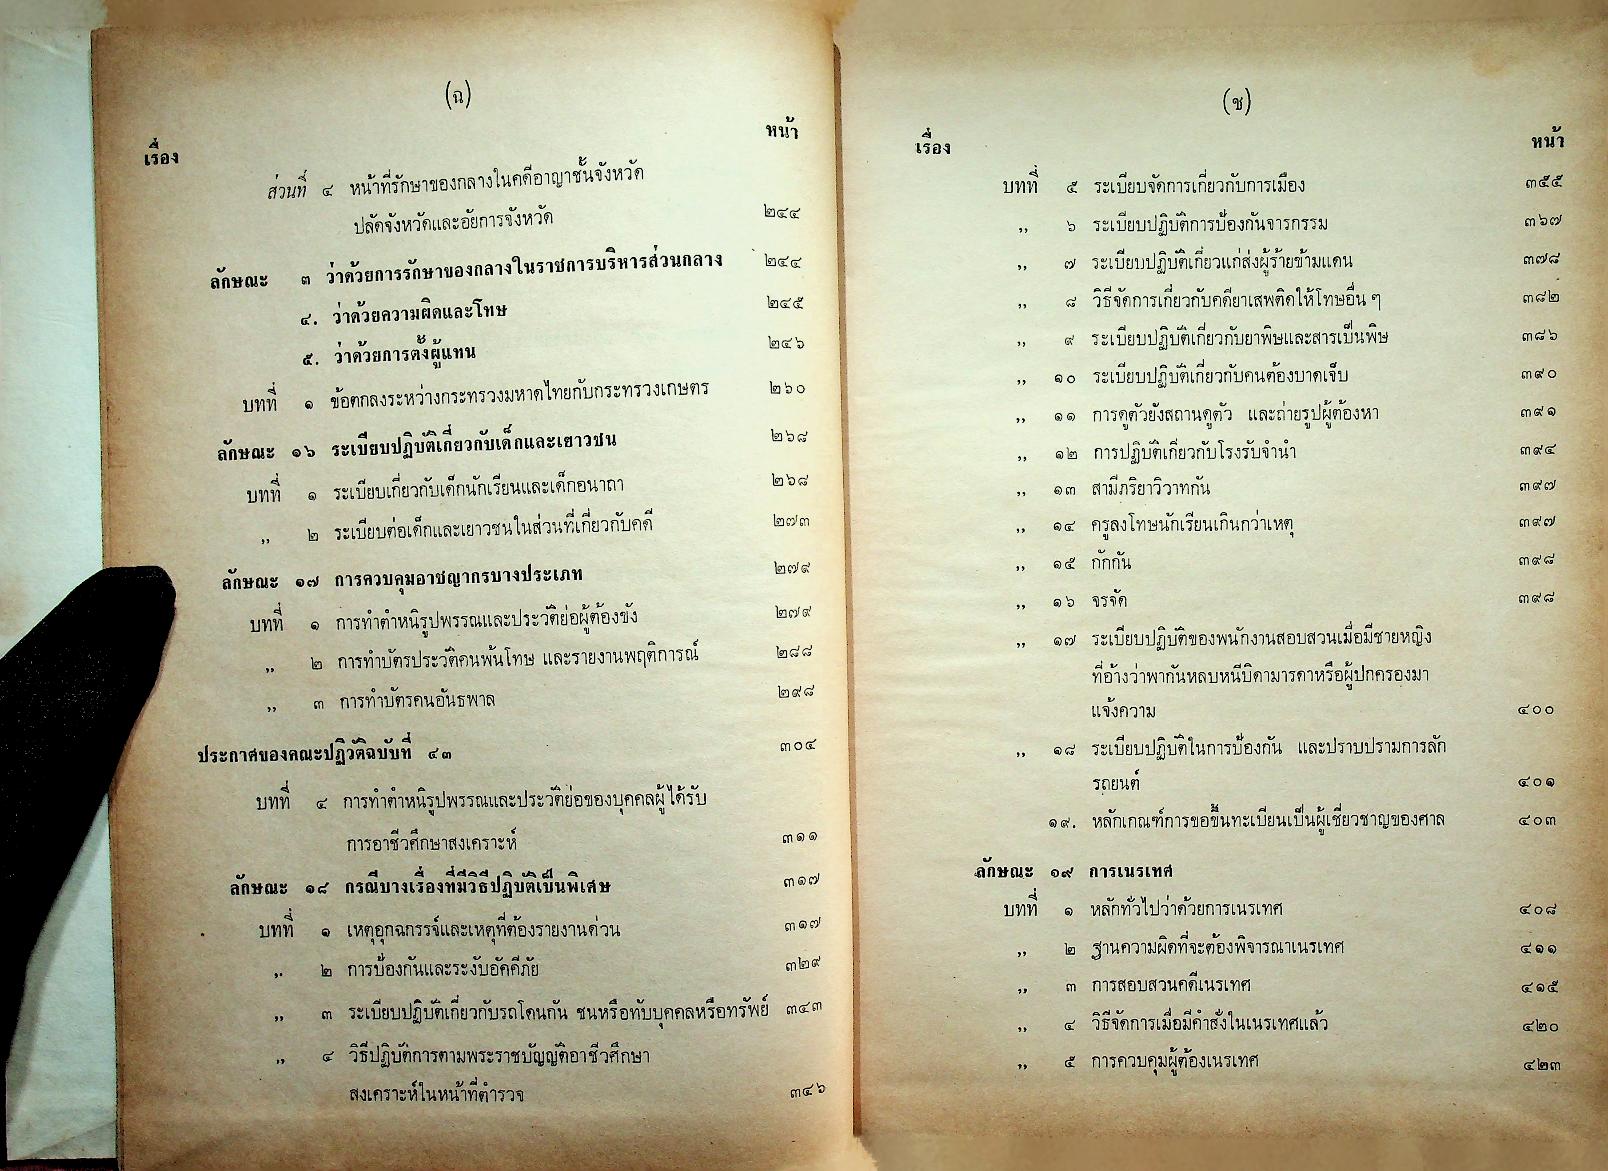 (ฉ)
เรื่อง หน้า
ส่วนที่ ๔ หน้าที่รักษาของกลางในคดีอาญาชั้นจังหวัด
ปลัดจังหวัดและอัยการจังหวัด ๒๔๔
ลักษณะ ๓ ว่าด้วยการรักษาของกลางในราชการบริหารส่วนกลาง ๒๔๔
๔. ว่าด้วยความผิดและโทษ ๒๔๕
๕. ว่าด้วยการตั้งผู้แทน ๒๔๖
บทที่ ๑ ข้อตกลงระหว่างกระทรวงมหาดไทยกับกระทรวงเกษตร ๒๖๐
ลักษณะ ๑๖ ระเบียบปฏิบัติเกี่ยวกับเด็กและเยาวชน ๒๖๘
บทที่ ๑ ระเบียบเกี่ยวกับเด็กนักเรียนและเด็กอนาถา ๒๖๘
,, ๒ ระเบียบต่อเด็กและเยาวชนในส่วนที่เกี่ยวกับคดี ๒๗๓
ลักษณะ ๑๗ การควบคุมอาชญากรบางประเภท ๒๗๙
บทที่ ๑ การทำตำหนิรูปพรรณและประวัติย่อผู้ต้องขัง ๒๗๙
,, ๒ การทำบัตรประวัติคนพ้นโทษ และรายงานพฤติการณ์ ๒๘๘
,, ๓ การทำบัตรคนอันธพาล ๒๙๘
ประกาศของคณะปฏิวัติฉบับที่ ๔๓ ๓๐๔
บทที่ ๔ การทำตำหนิรูปพรรณและประวัติย่อของบุคคลผู้ได้รับ
การอาชีวศึกษาสงเคราะห์ ๓๑๑
ลักษณะ ๑๘ กรณีบางเรื่องที่มีวิธีปฏิบัติเป็นพิเศษ ๓๑๗
บทที่ ๑ เหตุอุกฉกรรจ์และเหตุที่ต้องรายงานด่วน ๓๑๗
,, ๒ การป้องกันและระงับอัคคีภัย ๓๒๙
,, ๓ ระเบียบปฏิบัติเกี่ยวกับรถโดนกัน ชนหรือทับบุคคลหรือทรัพย์ ๓๔๓
,, ๔ วิธีปฏิบัติการตามพระราชบัญญัติอาชีวศึกษา
สงเคราะห์ในหน้าที่ตำรวจ ๓๔๖
(ช)
เรื่อง หน้า
บทที่ ๕ ระเบียบจัดการเกี่ยวกับการเมือง ๓๕๕
,, ๖ ระเบียบปฏิบัติการป้องกันจารกรรม ๓๖๗
,, ๗ ระเบียบปฏิบัติเกี่ยวแก่ส่งผู้ร้ายข้ามแดน ๓๗๘
,, ๘ วิธีจัดการเกี่ยวกับคดียาเสพติดให้โทษอื่น ๆ ๓๘๒
,, ๙ ระเบียบปฏิบัติเกี่ยวกับยาพิษและสารเป็นพิษ ๓๘๖
,, ๑๐ ระเบียบปฏิบัติเกี่ยวกับคนต้องบาดเจ็บ ๓๙๐
,, ๑๑ การดูตัวยังสถานดูตัว และถ่ายรูปผู้ต้องหา ๓๙๑
,, ๑๒ การปฏิบัติเกี่ยวกับโรงรับจำนำ ๓๙๔
,, ๑๓ สามีภริยาวิวาทกัน ๓๙๗
,, ๑๔ ครูลงโทษนักเรียนเกินกว่าเหตุ ๓๙๗
,, ๑๕ กักกัน ๓๙๘
,, ๑๖ จรจัด ๓๙๘
,, ๑๗ ระเบียบปฏิบัติของพนักงานสอบสวนเมื่อมีชายหญิง
ที่อ้างว่าพากันหลบหนีบิดามารดาหรือผู้ปกครองมา
แจ้งความ ๔๐๐
,, ๑๘ ระเบียบปฏิบัติในการป้องกัน และปราบปรามการลัก
รถยนต์ ๔๐๑
๑๙. หลักเกณฑ์การขอขึ้นทะเบียนเป็นผู้เชี่ยวชาญของศาล ๔๐๓
ลักษณะ ๑๙ การเนรเทศ
บทที่ ๑ หลักทั่วไปว่าด้วยการเนรเทศ ๔๐๘
,, ๒ ฐานความผิดที่จะต้องพิจารณาเนรเทศ ๔๑๑
,, ๓ การสอบสวนคดีเนรเทศ ๔๑๕
,, ๔ วิธีจัดการเมื่อมีคำสั่งในเนรเทศแล้ว ๔๒๐
,, ๕ การควบคุมผู้ต้องเนรเทศ ๔๒๓